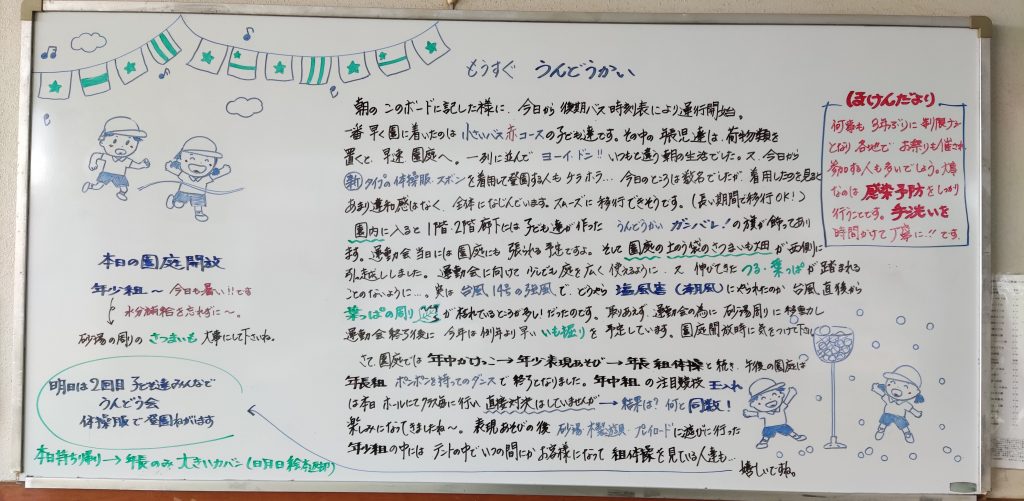 もうすぐ うんどうかい
朝の このボードに記した様に、今日から 後期バス時刻表により運行開始。
一番早く園に着いたのは 小さいバス赤コースの子ども達です。その中の 年長児達は、荷物類を
置くと、早速 園庭へ。一列に並んで ヨーイ・ドン!! いつもと違う朝の生活でした。又、今日から
新タイプの体操服・ズボンを着用して登園する人も チラホラ… 今日のところは数名でしたが 着用したのを見ると
あまり違和感はなく、全体になじんでいます。スムーズに移行できそうです。(長い期間で移行OK!)
園内に入ると 1階・2階廊下には 子ども達が作った うんどうかい ガンバレ!の旗が飾ってあり
ます。運動会 当日には園庭にも 張られる予定ですよ。そして 園庭の土のう袋のさつまいも畑が 西側に
引っ越ししました。運動会に向けて 少しでも庭を広く使えるように… 又 伸びてきた つる・葉っぱが踏まれる
ことのないように…。実は 台風14号の強風で、どうやら 塩風害(潮風)にやられたのか 台風直後から
葉っぱの周りが枯れているところが多い だったのです。取りあえず、運動会の為に 砂場周りに移動し
運動会終了後に 今年は例年より早い いも掘りを予定しています。園庭開放時に気をつけて下さい
さて、園庭では 年中かけっこ→年少表現あそび→年長組体操と続き、午後の園庭は
年長組 ポンポンを持ってのダンスで 終了となりました。年中組の注目競技 玉入れ
は本日 ホールにてクラス毎に行い 直接対決はしていませんが→結果は? 何と同数!
楽しみになってきましたね〜。表現あそびの後 砂場・木製遊具・プレイロードに遊びに行った
年少組の中には テントの中でいつの間にか お客様になって 組体操を見ている人達も…
嬉しいですね。
ほけんだより
何事も 3年ぶりに 制限なし
となり 各地で お祭りも催され
参加する人も多いでしょう。大事
なのは 感染予防をしっかり
行うことです。手洗いを
時間かけて 丁寧に!!です。
本日の園庭開放
年少組〜 今日も暑い!!です
水分補給を忘れずに〜。
砂場の周りの さつまいも 大事にして下さいね。
明日は2回目 子ども達みんなで
うんどう会
体操服で登園ねがいます
本日持ち帰り→年長のみ 大きいカバン